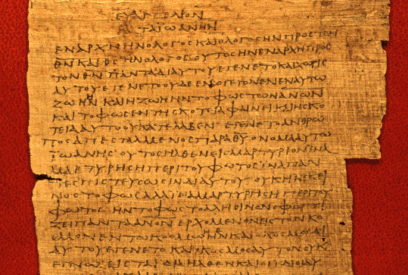 ΕΥΑΓΓΕΛΙΟΝ
ΚΑΤΑ ΙΩΑΝΗΝ
ΕΝ ΑΡΧΗ ΗΝ Ο ΛΟΓΟϹ ΚΑΙ Ο ΛΟΓΟϹ ΗΝ ΠΡΟϹ ΤΟΝ
ΘΝ ΚΑΙ ΘϹ ΗΝ Ο ΛΟΓΟϹ ΟΥΤΟϹ ΗΝ ΕΝ ΑΡΧΗ ΠΡΟϹ
ΤΟΝ ΘΝ ΠΑΝΤΑ ΔΙ ΑΥΤΟΥ ΕΓΕΝΕΤΟ ΚΑΙ ΧΩΡΙϹ
ΑΥΤΟΥ ΕΓΕΝΕΤΟ ΟΥΔΕ ΕΝ Ο ΓΕΓΟΝΕΝ ΕΝ ΑΥΤΩ
ΖΩΗ ΗΝ ΚΑΙ Η ΖΩΗ ΗΝ ΤΟ ΦΩϹ ΤΩΝ ΑΝΩΝ
ΚΑΙ ΤΟ ΦΩϹ ΕΝ ΤΗ ϹΚΟΤΕΙΑ ΦΑΙΝΕΙ ΚΑΙ Η ϹΚΟ
ΤΕΙΑ ΑΥΤΟ ΟΥ ΚΑΤΕΛΑΒΕΝ ΕΓΕΝΕΤΟ ΑΝΘΡΩ
ΠΟϹ ΑΠΕϹΤΑΛΜΕΝΟϹ ΠΑΡΑ ΘΥ ΟΝΟΜΑ ΑΥΤΩ
ΙΩΑΝΗϹ ΟΥΤΟϹ ΗΛΘΕΝ ΕΙϹ ΜΑΡΤΥΡΙΑΝ ΙΝΑ
ΜΑΡΤΥΡΗϹΗ ΠΕΡΙ ΤΟΥ ΦΩΤΟϹ ΙΝΑ ΠΑΝ
ΤΕϹ ΠΙϹΤΕΥϹΩϹΙΝ ΔΙ ΑΥΤΟΥ ΟΥΚ ΗΝ ΕΚΕΙ
ΝΟϹ ΤΟ ΦΩϹ ΑΛΛ ΙΝΑ ΜΑΡΤΥΡΗϹΗ ΠΕΡΙ ΤΟΥ
ΦΩΤΟϹ ΗΝ ΤΟ ΦΩϹ ΤΟ ΑΛΗΘΙΝΟΝ Ο ΦΩΤΙ
ΖΕΙ ΠΑΝΤΑ ΑΝΟΝ ΕΡΧΟΜΕΝΟΝ ΕΙϹ ΤΟΝ ΚΟ